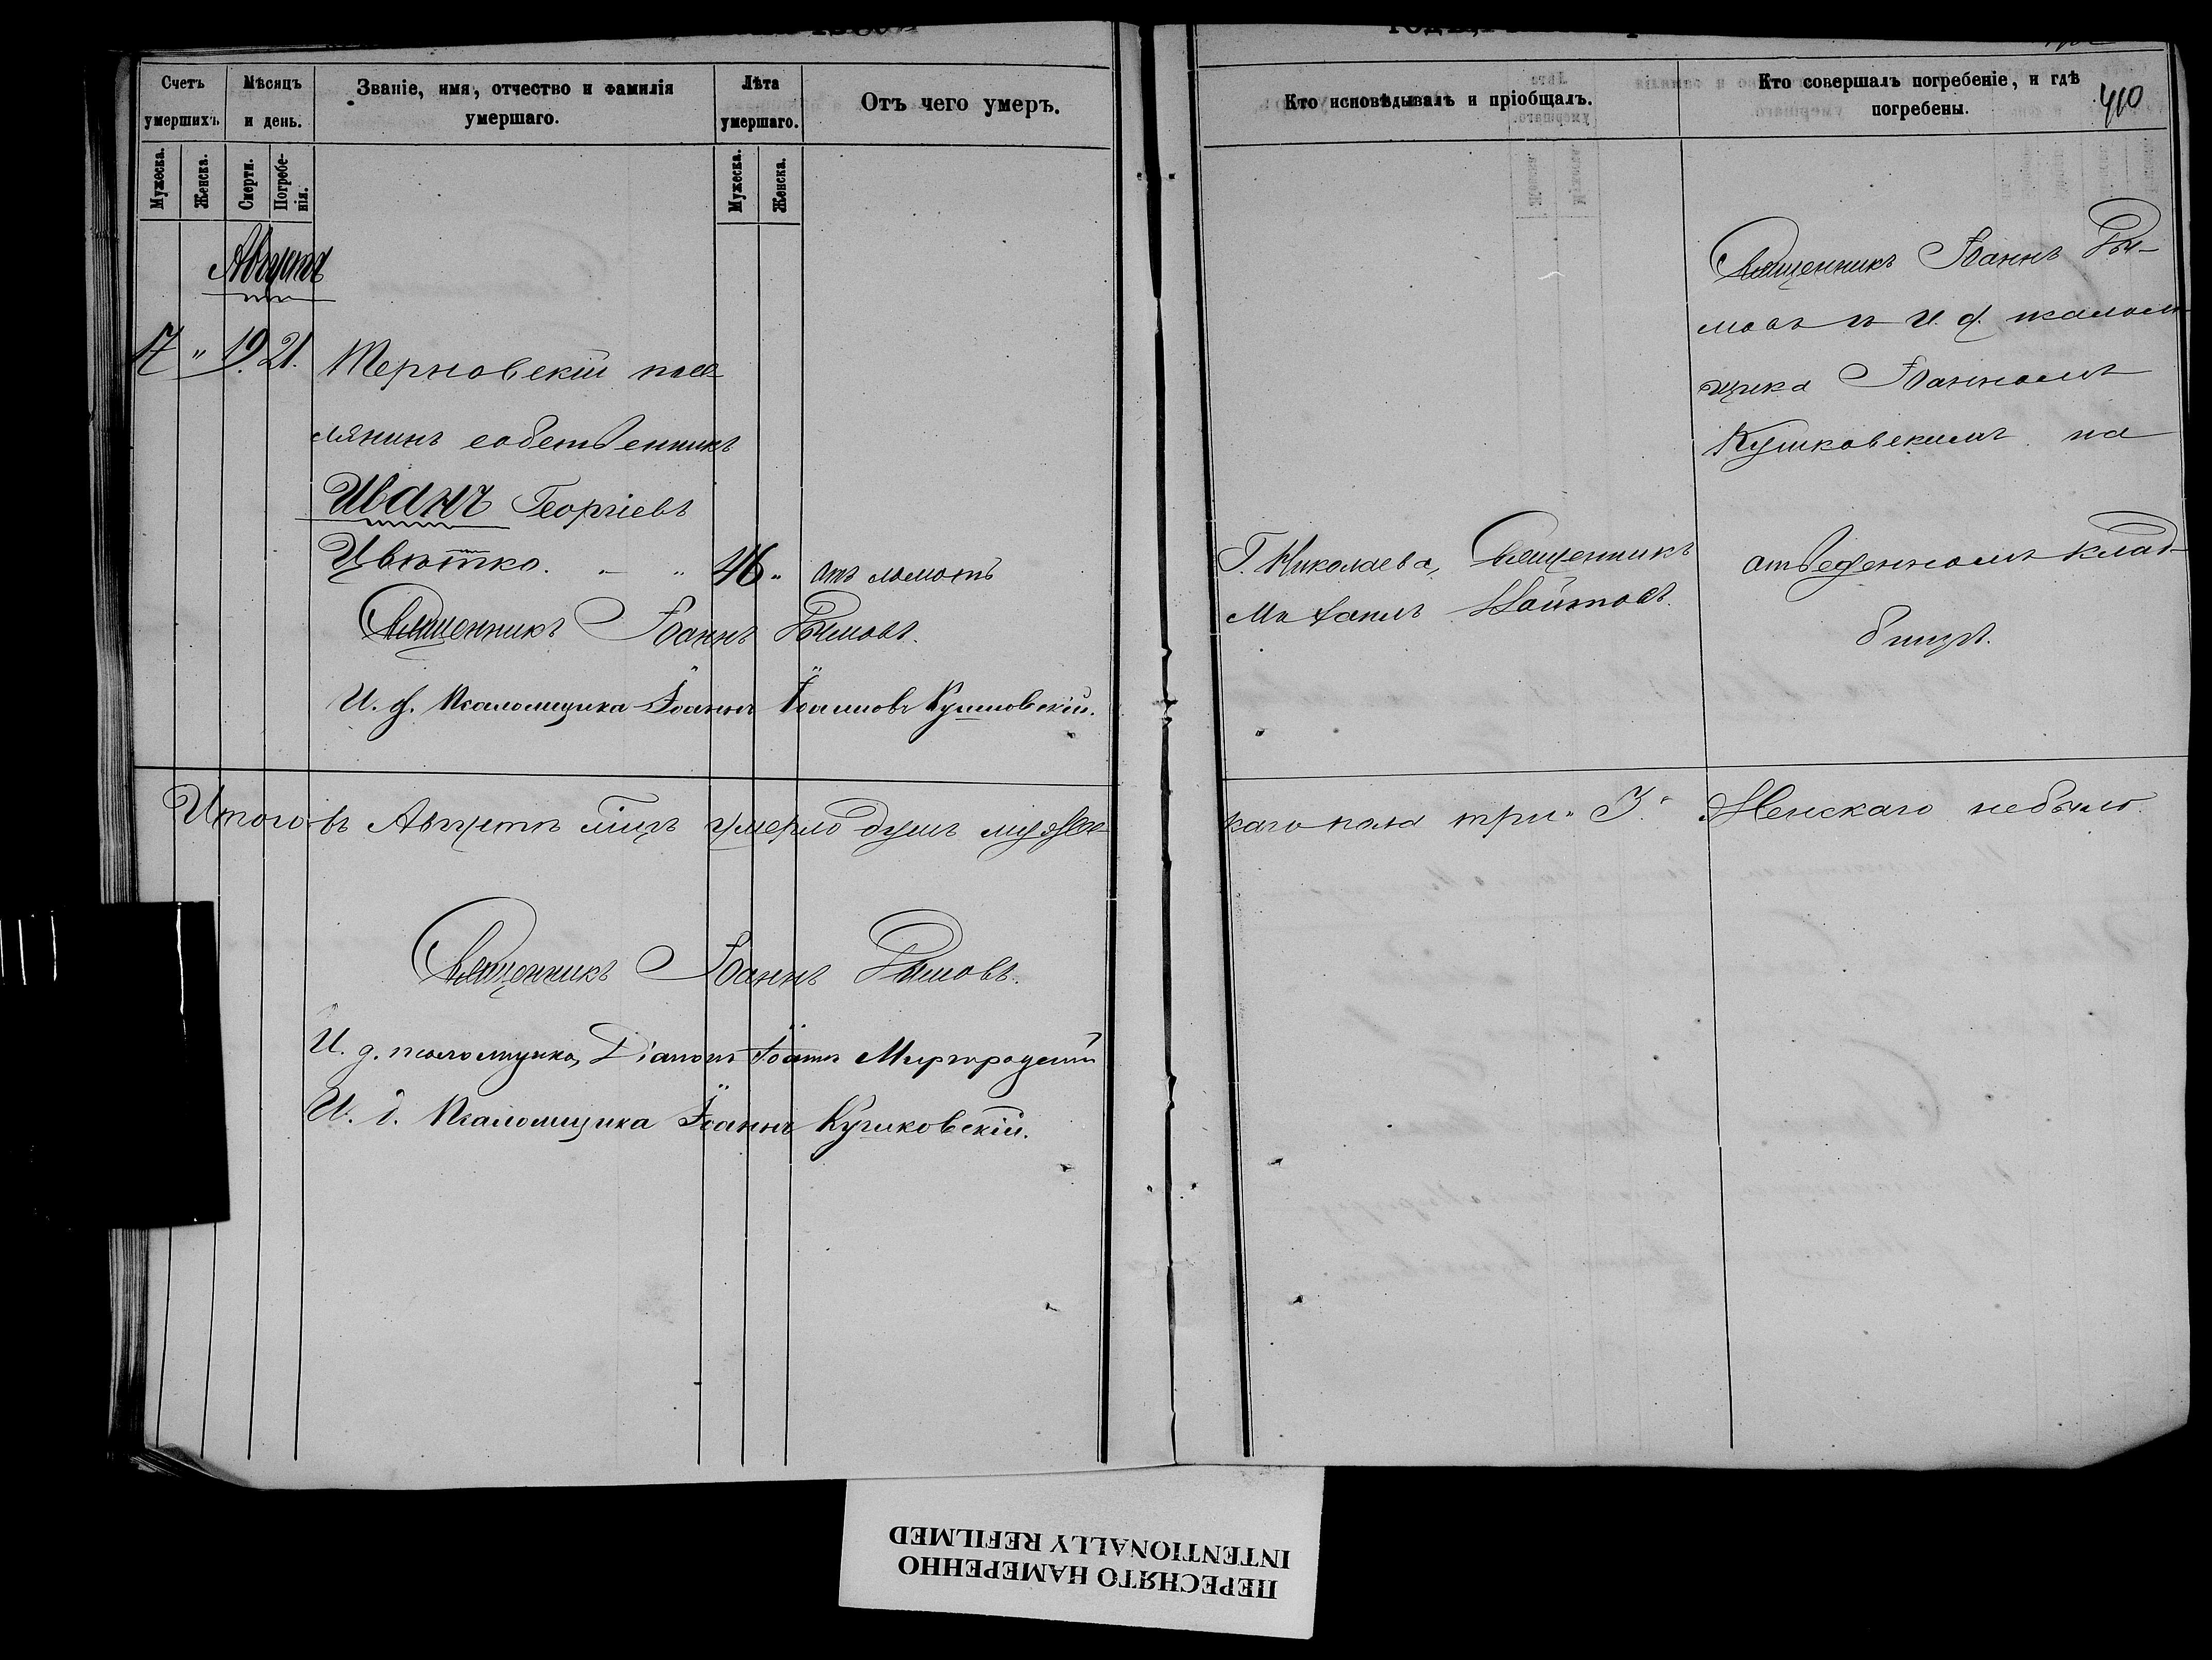 Счетъ умершихъ.
Мѣсяцъ и день.
Званіе, имя, отчество и фамилія умершаго.
Лѣта умершаго.
Отъ чего умеръ.
Кто исповѣдывалъ и пріобщалъ.
Кто совершалъ погребеніе, и гдѣ погребены.
410
Мужеска.
Женска.
Смерти.
Погребенія.
Мужеска.
Женска.
Августа
17 " 19. 21.
Терновскій посе-
лянинъ собственникъ
Иванъ Георгіевъ
Цвѣтко. " " 46 " отъ ломотъ
Священникъ Іоаннъ
И. д. Псаломщика Іоаннъ Іоанновъ Кушковскій.
Г. Николаева, Священникъ
Михаилъ
Священникъ Іоаннъ
мовъ съ И. д. псалом-
щика Іоанномъ
Кушковскимъ на
отведенномъ клад-
бищѣ.
Итого въ Августѣ мцѣ умерло душъ мужес-
каго пола три " 3. " Женскаго небыло.
Священникъ Іоаннъ
И. д. псаломщика, Діаконъ Іоаннъ
И. д. Псаломщика Іоаннъ Кушковскій.
ПЕРЕСНЯТО НАМЕРЕННО
INTENTIONALLY REFILMED